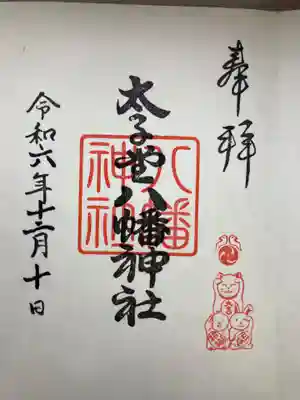 奉拝
太子堂八幡神社
八幡神社
令和六年十二月十日